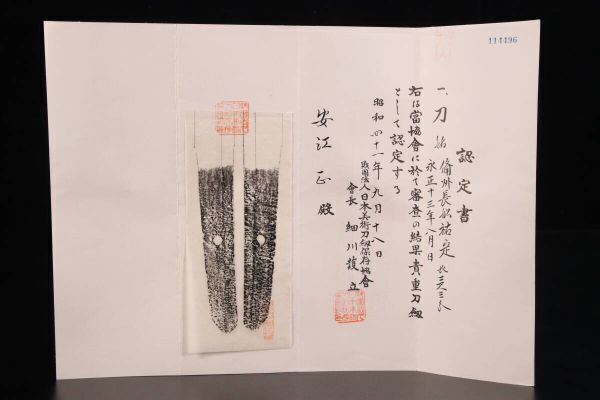 114496
認定書
一、刀 銘 備州長船祐定
永正十三年八月日
右は當協會に於て審査の結果貴重刀劔
として認定する
昭和四十一年九月十八日
財団法人日本美術刀劔保存協會
會長 細川護立
安江 正 殿